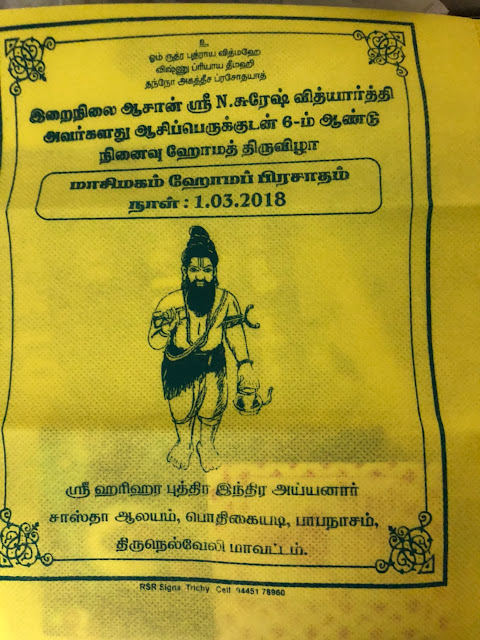 உ
ஓம் ருத்ர புத்ராய வித்மஹே
விஷ்ணு ப்ரியாய தீமஹி
தந்நோ அகத்தீச ப்ரசோதயாத்
இறைநிலை ஆசான் ஸ்ரீ N.சுரேஷ் வித்யார்த்தி
அவர்களது ஆசிப்பெருக்குடன் 6-ம் ஆண்டு
நினைவு ஹோமத் திருவிழா
மாசிமகம் ஹோமப் பிரசாதம்
நாள் : 1.03.2018
ஸ்ரீ ஹரிஹர புத்திர இந்திர அய்யனார்
சாஸ்தா ஆலயம், பொதிகையடி, பாபநாசம்,
திருநெல்வேலி மாவட்டம்.
RSR Signs, Trichy, Cell: 94451 78960